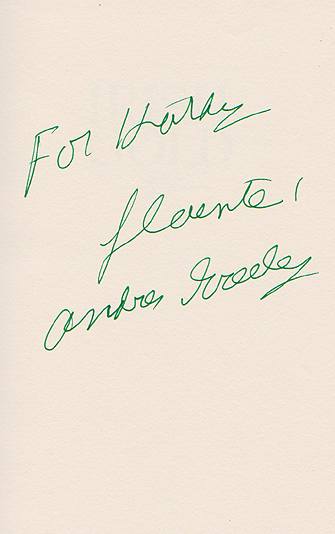 For Kathy
Slainte,
Andrew Greeley